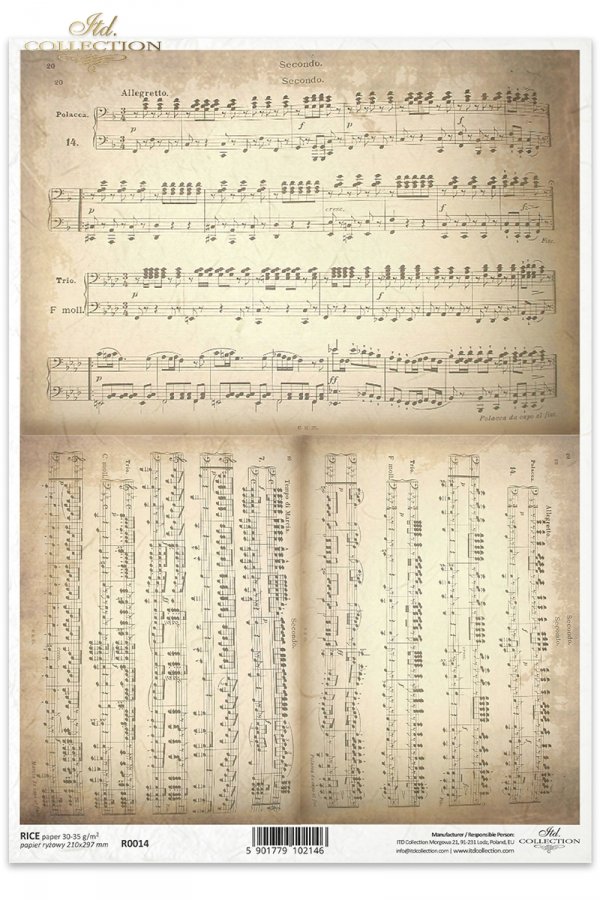 Itd.
COLLECTION
20
Secondo.
20
Secondo.
Allegretto.
Polacca.
14.
p
f
p
f
p
cresc.
f
fz
Fine.
Trio.
F moll.
p
f
p
ff
Polacca da capo al fine.
Tempo di Marcia.
Secondo.
7.
Trio.
C moll.
20
Secondo.
20
Secondo.
Allegretto.
Polacca.
14.
Trio.
F moll.
RICE paper 30-35 g/m²
papier ryżowy 210x297 mm
R0014
5 901779 102146
Manufacturer / Responsible Person:
ITD Collection Morgowa 21, 91-231 Lodz, Poland, EU
info@itdcollection.com | www.itdcollection.com
Itd.
COLLECTION